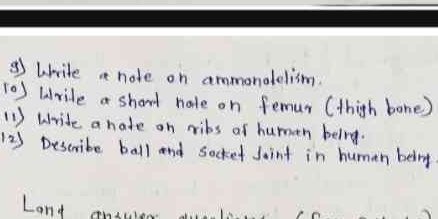 9) Write a note on ammonotelism.
10) Write a short note on femur (thigh bone)
11) Write a note on ribs of human being.
12) Describe ball and socket Joint in human being.
Long